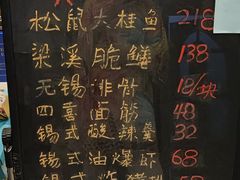 松鼠大桂鱼 218
梁溪脆鳝 138
无锡排骨 18/块
四喜面筋 48
锡式酸辣羹 32
锡式油爆虾 68
锡式炸猪